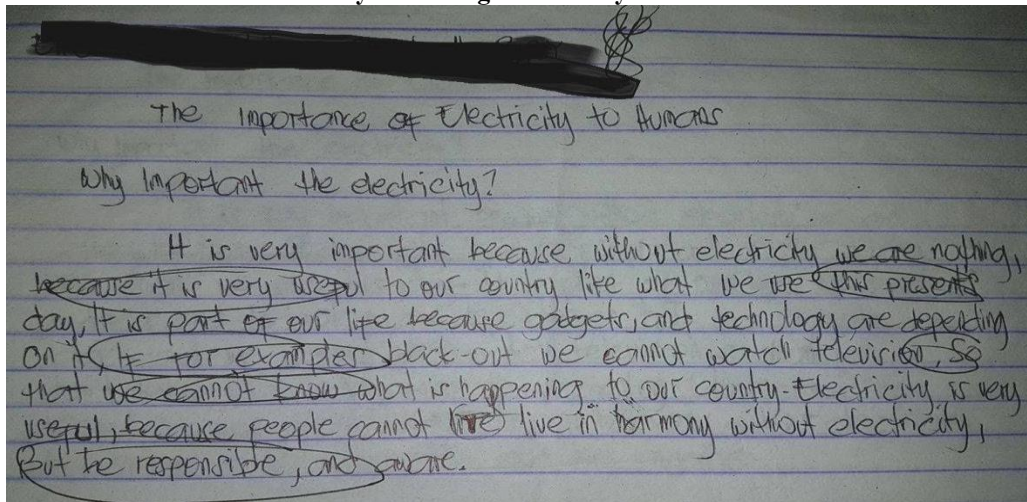 The Importance of Electricity to Humans
Why Important the electricity?
It is very important because without electricity we are nothing,
because it is very useful to our country like what we use this presents
day, It is part of our life because gadgets, and technology are depending
on it, If for example black-out we cannot watch television, So
that we cannot know what is happening to our country. Electricity is very
useful, because people cannot live in harmony without electricity,
But be responsible, and aware.